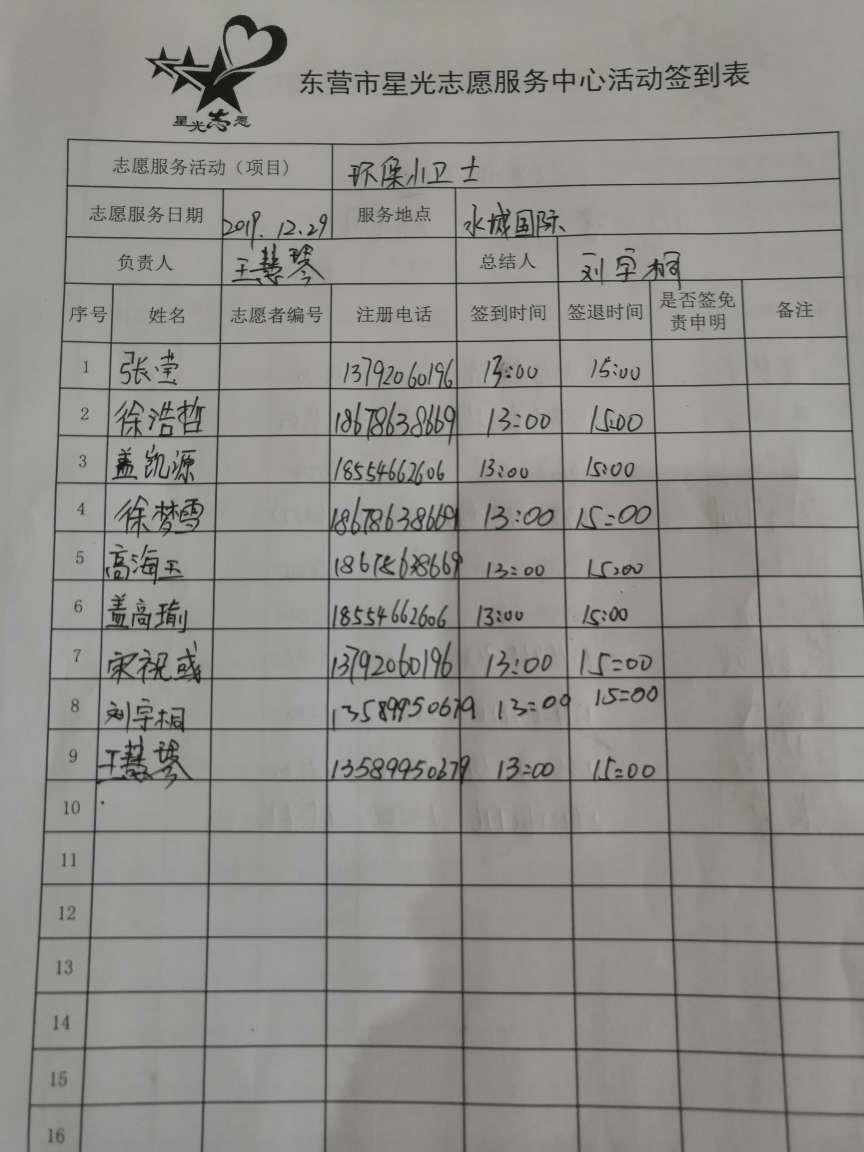 东营市星光志愿服务中心活动签到表
星光志愿
志愿服务活动（项目） 环保小卫士
志愿服务日期 2019.12.29 服务地点 水城国际
负责人 王慧琴 总结人 刘宇桐
序号 姓名 志愿者编号 注册电话 签到时间 签退时间 是否签免责申明 备注
1 张莹 13792060196 13:00 15:00
2 徐浩哲 18678638669 13:00 15:00
3 盖凯源 18554662606 13:00 15:00
4 徐梦雪 18678638669 13:00 15:00
5 高海玉 18678638669 13:00 15:00
6 盖高瑜 18554662606 13:00 15:00
7 宋祝 13792060196 13:00 15:00
8 刘宇桐 13589950679 13:00 15:00
9 王慧琴 13589950679 13:00 15:00
10
11
12
13
14
15
16